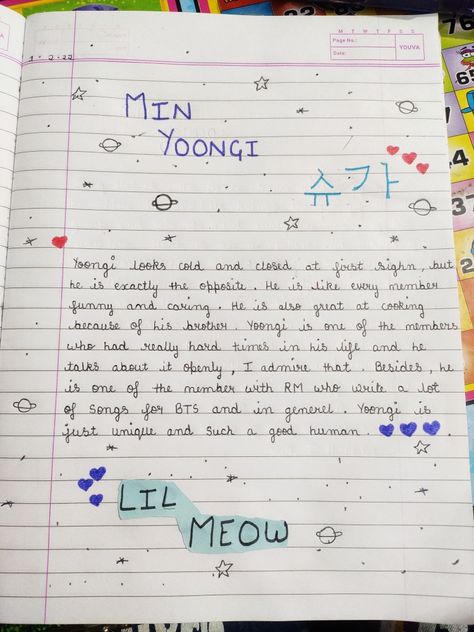 M T W T F S S
Page No.:
Date:
YOUVA
MIN
YOONGI
슈가
Yoongi looks cold and closed at first sighn, but
he is exactly the opposite. He is like every member
funny and caring. He is also great at cooking
because of his brother. Yoongi is one of the members
who had really hard times in his life and he
talks about it openly, I admire that. Besides, he
is one of the member with RM who write a lot
of songs for BTS and in generel. Yoongi is
just unique and such a good human.
LIL
MEOW